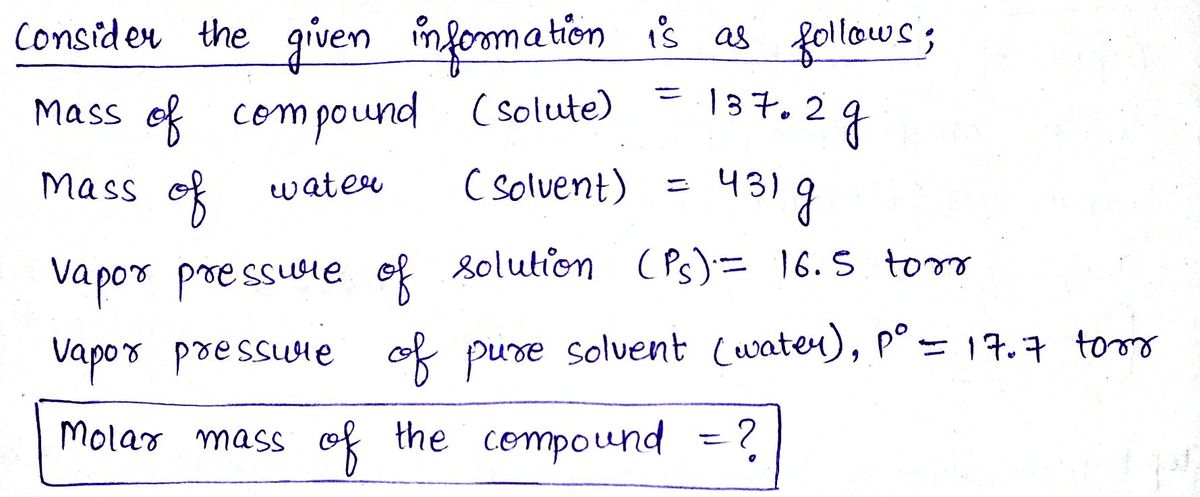 Consider the given information is as follows;
Mass of compound (solute) = 137.2 g
Mass of water (solvent) = 431 g
Vapor pressure of solution (Ps) = 16.5 torr
Vapor pressure of pure solvent (water), P° = 17.7 torr
Molar mass of the compound = ?